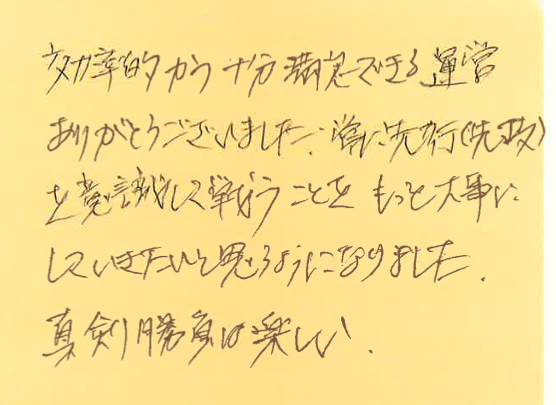 効率的かつ十分満足できる運営
ありがとうございました。常に先行(先攻)
を意識して戦うことを もっと大事に
していきたいと思うようになりました.
真剣勝負は楽しい.